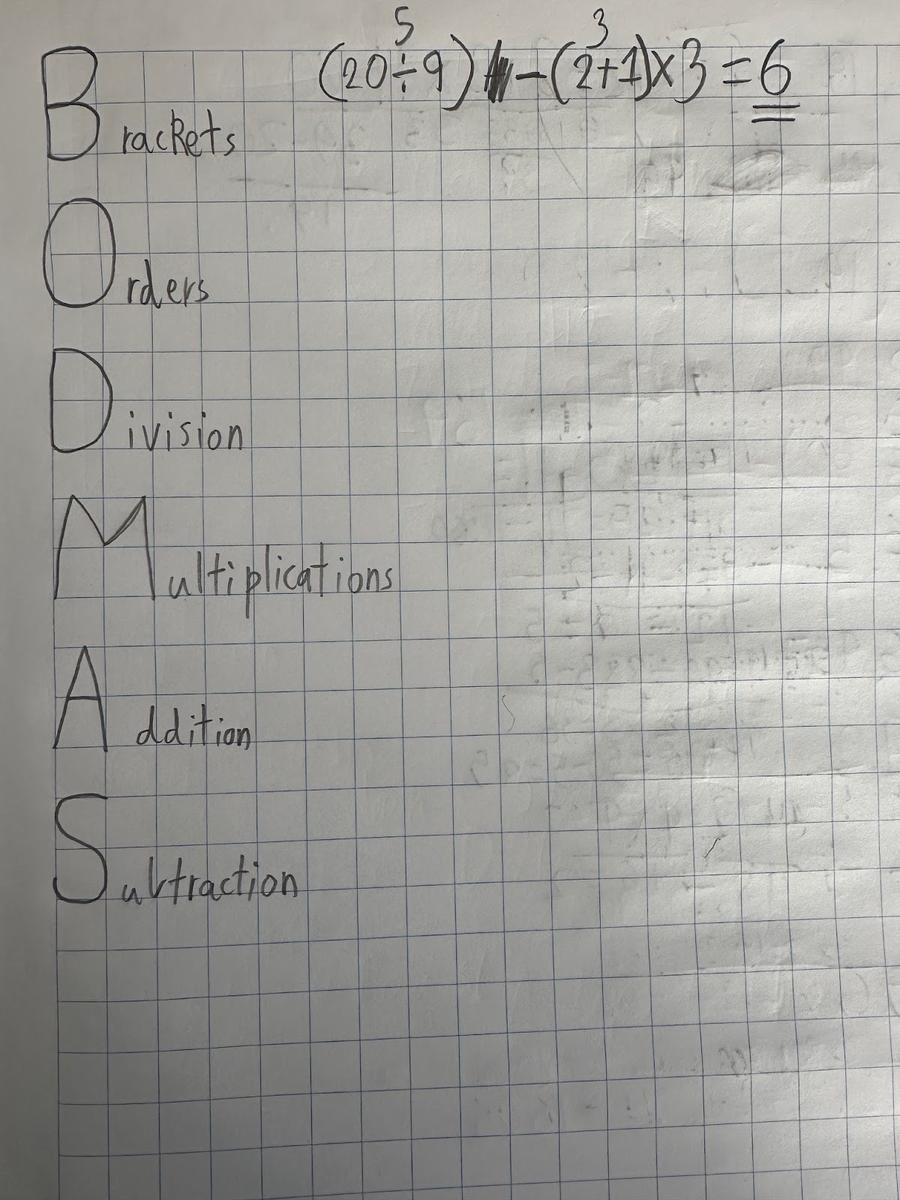 5 3
(20÷9) -(2+1)×3=6
Brackets
Orders
Division
Multiplications
Addition
Subtraction